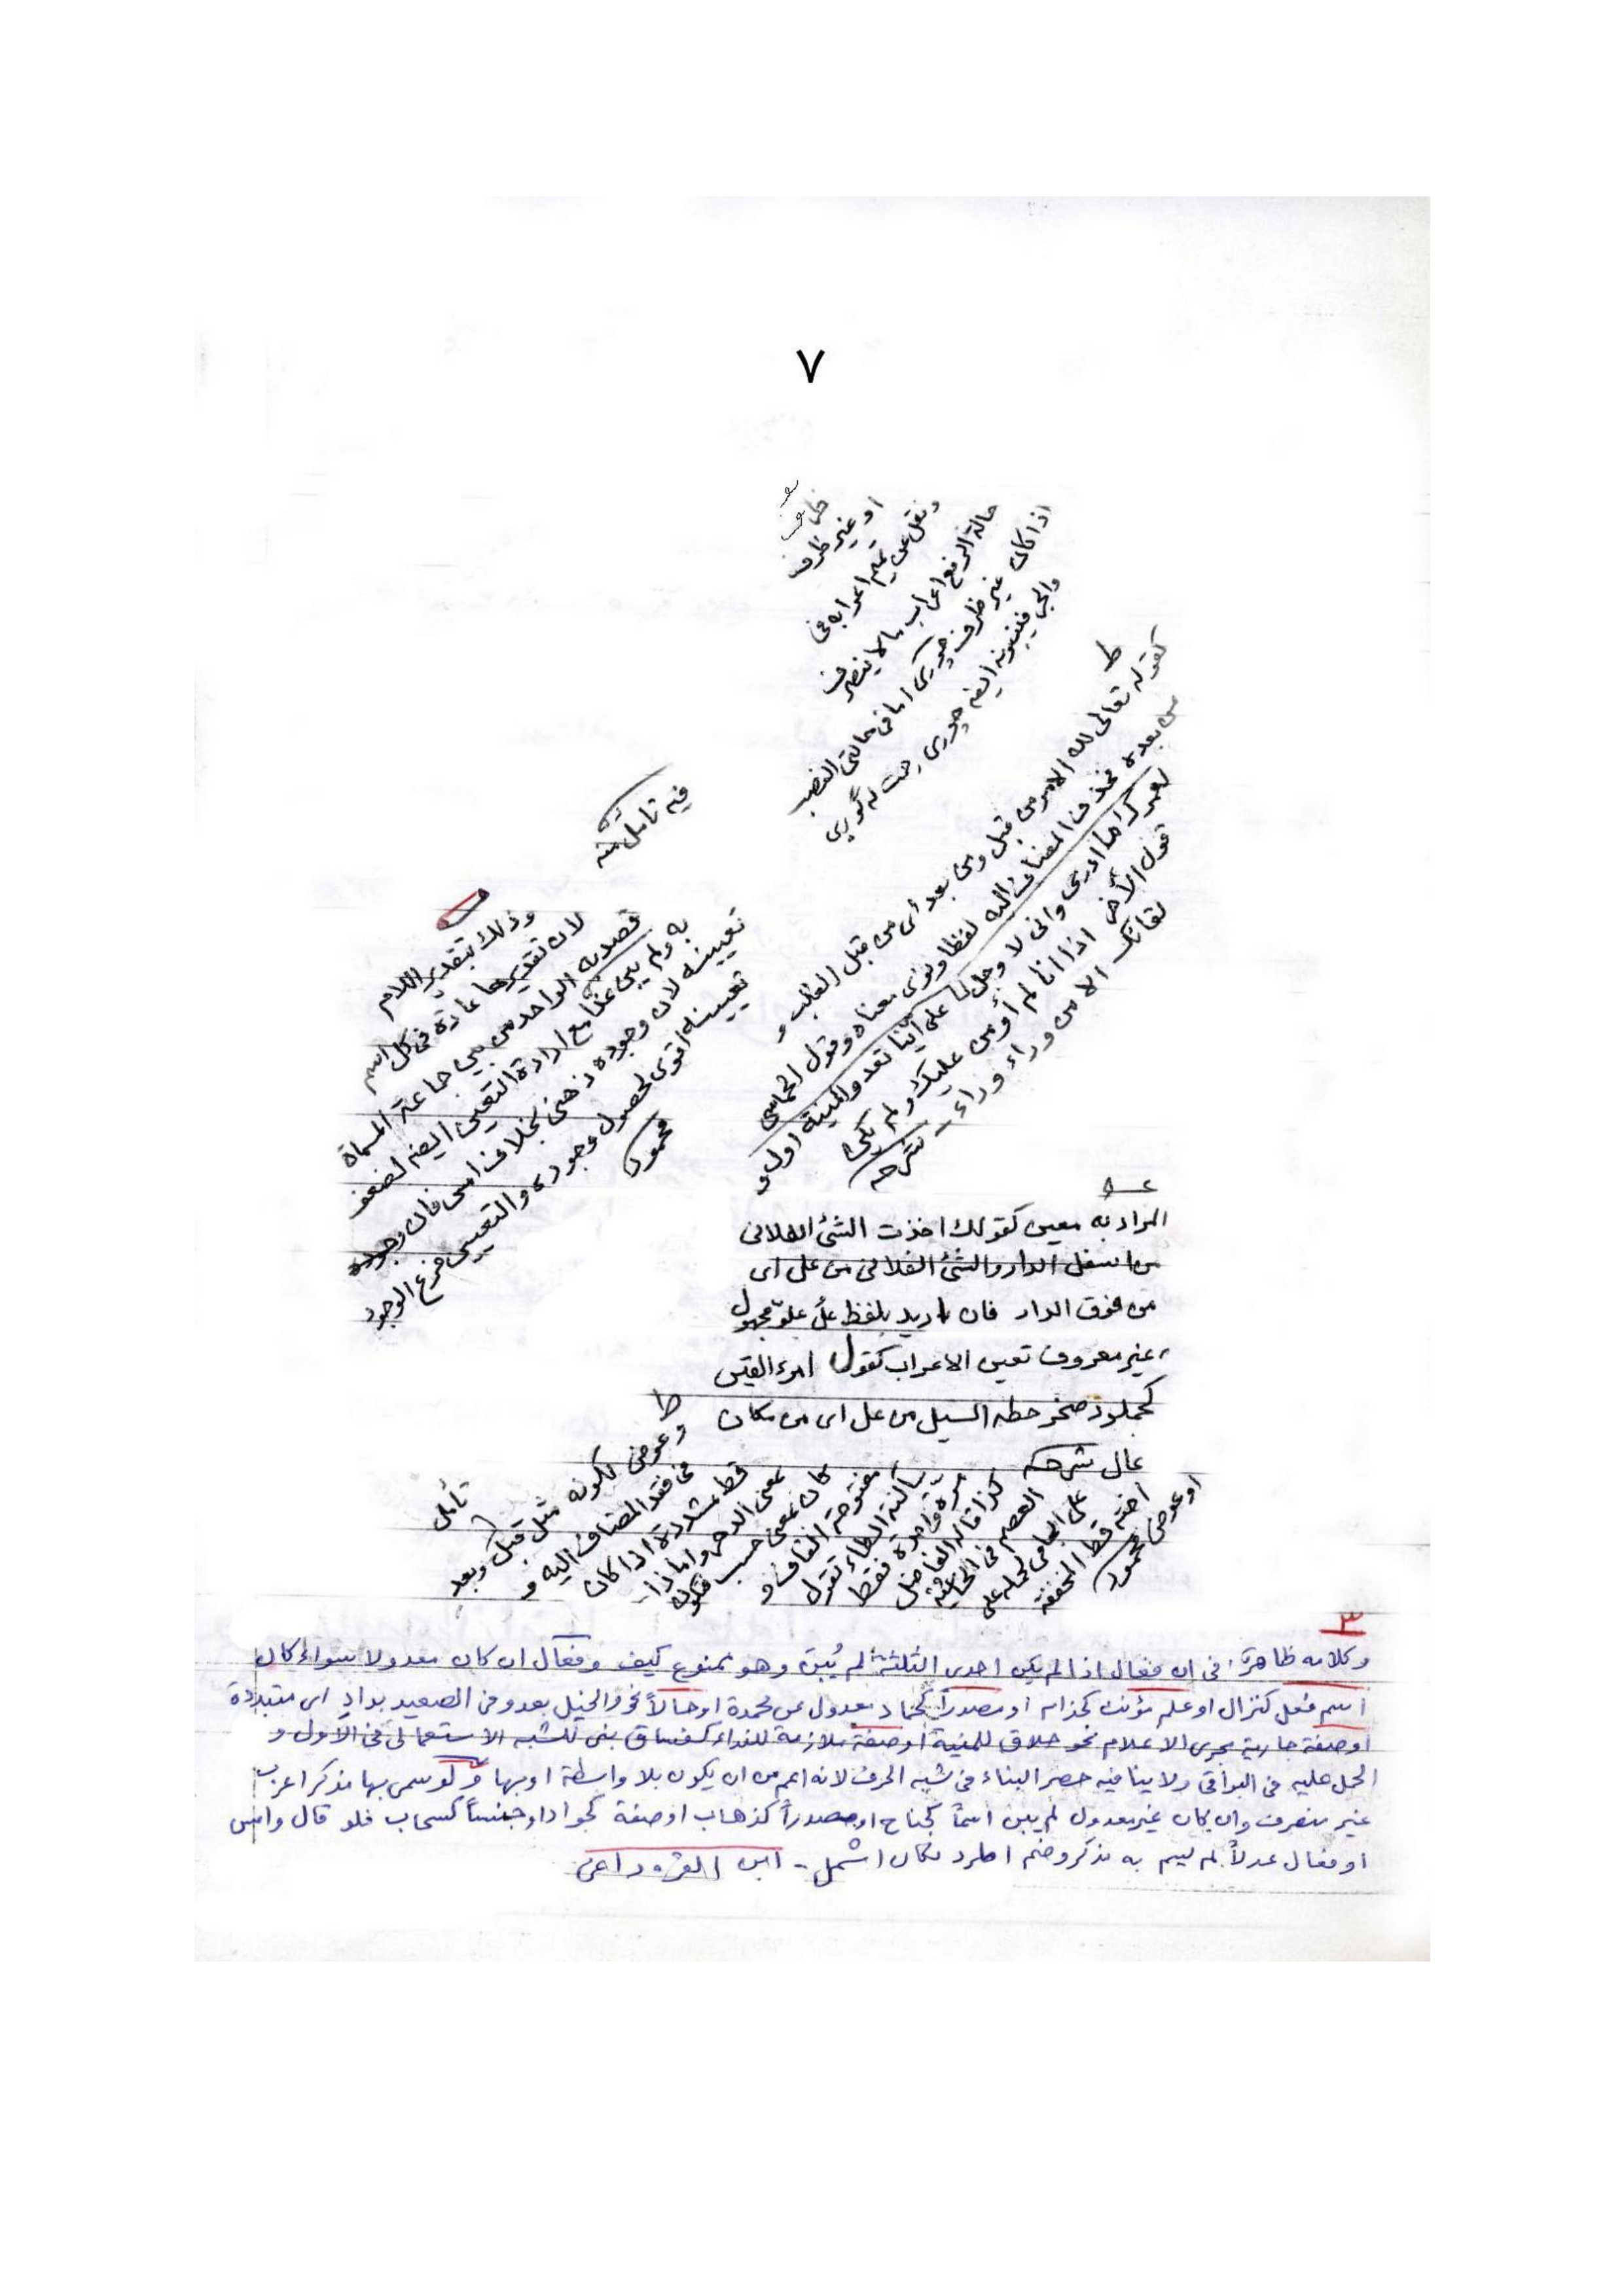 ٧
او غير ظرف
ونقل عن تميم اعرابه فى
حالة الرفع اعراب مالا ينصرف
اذا كان غير ظرف چورى اما فى حالتى النصب
والجر فيبنونه ايضه چورى
ط
كقوله تعالى لله الامر من قبل ومن بعد اى من قبل الغلب و
من بعده فحذف المضاف اليه لفظا ونوى معناه وقول الحماسى
لعمرك ما ادرى وانى لا وجل على اينا تعدو المنية اول و
قول الآخر اذا انا لم أومن عليك ولم يكن
لقائك الا من وراء وراء ـ شرحه
فيه تامل منه
وذلك بتقدير اللام
لان تقديرها عادة فى كل اسم
قصد به الواحد من بين جماعة المسماة
به ولم يبن غدا مع ارادة التعين ايضه لضعف
تعيينه لان وجوده ذهنى بخلاف امس فان وجوده
تعيينه اقوى لحصول وجوده والتعيين فرع الوجود
محمود
المراد به معين كقولك اخذت الشئ الفلانى
من اسفل الدار والشئ الفلانى من على اى
من فوق الدار فان اريد بلفظ عل علو مجهول
غير معروف تعين الاعراب كقول امرء القيس
كجملود صخر حطه السيل من عل اى من مكان
عال شرحه
ط
وعوض لكونه مثل قبل وبعد
فى فقد المضاف اليه و
قط مشددة اذا كان
بمعنى الدهر واما اذا
كان بمعنى حسب فتكون
مفتوحة القاف و
ساكنة الطاء تقول
مرة واحدة فقط
كذا قاله الفاضل
العصم فى الحاشية
على الجامى لحمله على
اخته قط المخففة
او عوض محمود
تأمل
٣
وكلامه ظاهرة فى ان فعال اذا لم يكن احدى الثلثة لم يُبن وهو ممنوع كيف وفعال ان كان معدولا سواء كان
اسم فعل كنزال او علم مؤنث كحذام او مصدراً كحماد معدول عن محمدة او حالاً نحو والخيل بعدو فى الصعيد بدادِ اى متبددة
او صفة جارية مجرى الاعلام نحو حلاق للمنية او صفة ملازمة للنداء كفساق بنى للشبه الاستعمالى فى الاول و
الحمل عليه فى البواقى ولا ينافيه حصر البناء فى شبه الحرف لانه اعم من ان يكون بلا واسطة او بها ولو سمى بها مذكر اعرب
غير منصرف وان كان غير معدول لم يبن اسماً كجناح او مصدراً كذهاب او صفة كجواد او جنساً كسحاب فلو قال وامس
او فعال عدلاً لم يسم به مذكر وضم اطرد لكان اشمل ـ ابن القره داغى